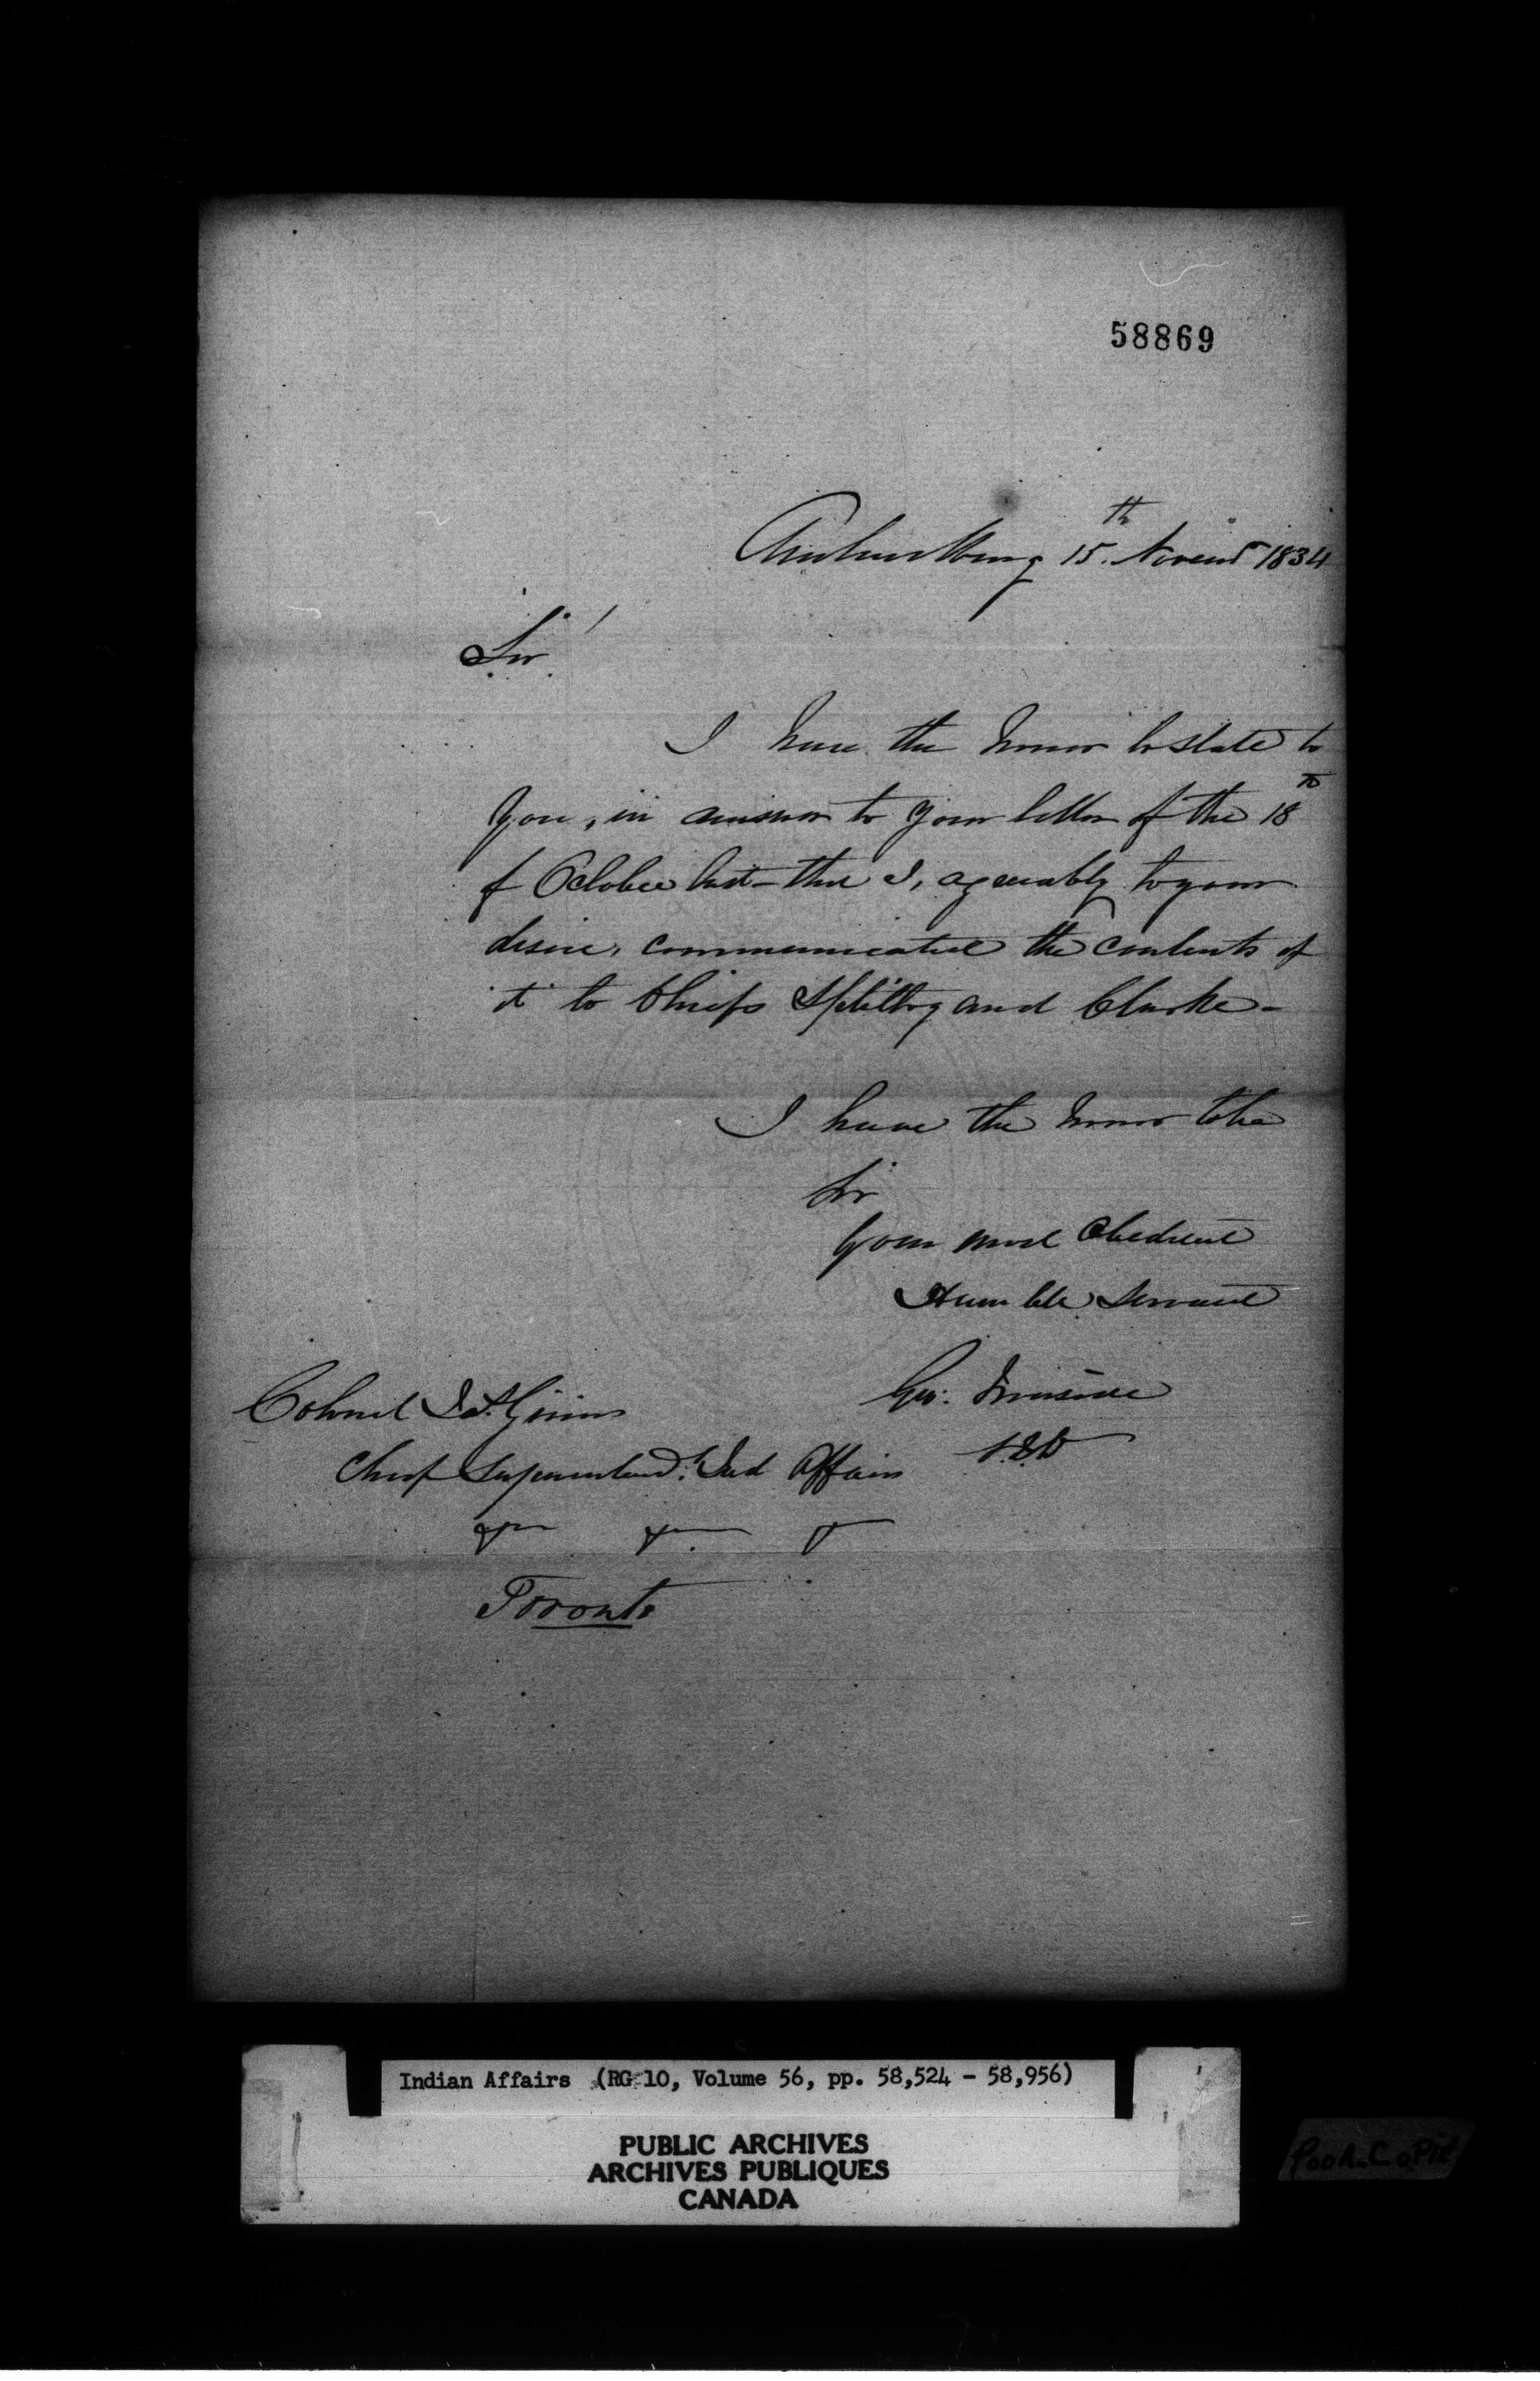 58869
Amherstburg 15th Novemr 1834
Sir!
I have the honor to state to
you, in answer to your letter of the 18th
of October last – that I, agreeably to your
desire, communicated the contents of
it to Chiefs Splitlog and Clarke –
I have the honor to be
Sir
Your most obedient
Humble Servant
Geo: Ironside
S.I.A
Colonel Js. Givins
Chief Superintendt. Ind Affairs
&c &c &c
Toronto
Indian Affairs (RG 10, Volume 56, pp. 58,524 - 58,956)
PUBLIC ARCHIVES
ARCHIVES PUBLIQUES
CANADA
Poor-Copie